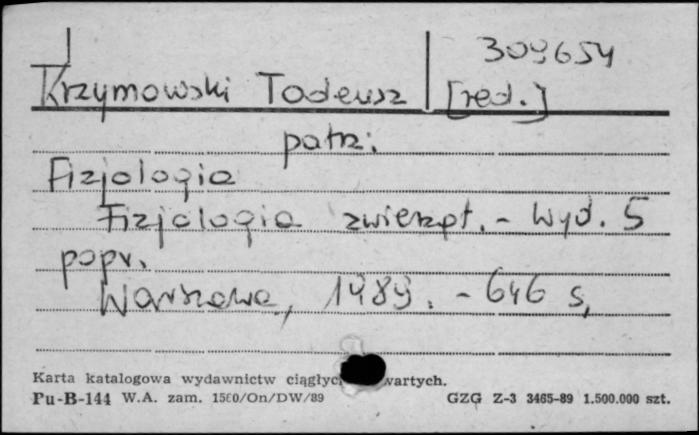 309654
Krzymowski Tadeusz [red.]
patrz:
Fizjologia
Fizjologia zwierząt. - Wyd. 5
popr.
Warszawa, 1989. - 646 s,
Karta katalogowa wydawnictw ciągłyc wartych.
Pu-B-144 W.A. zam. 1560/On/DW/89 GZG Z-3 3465-89 1.500.000 szt.